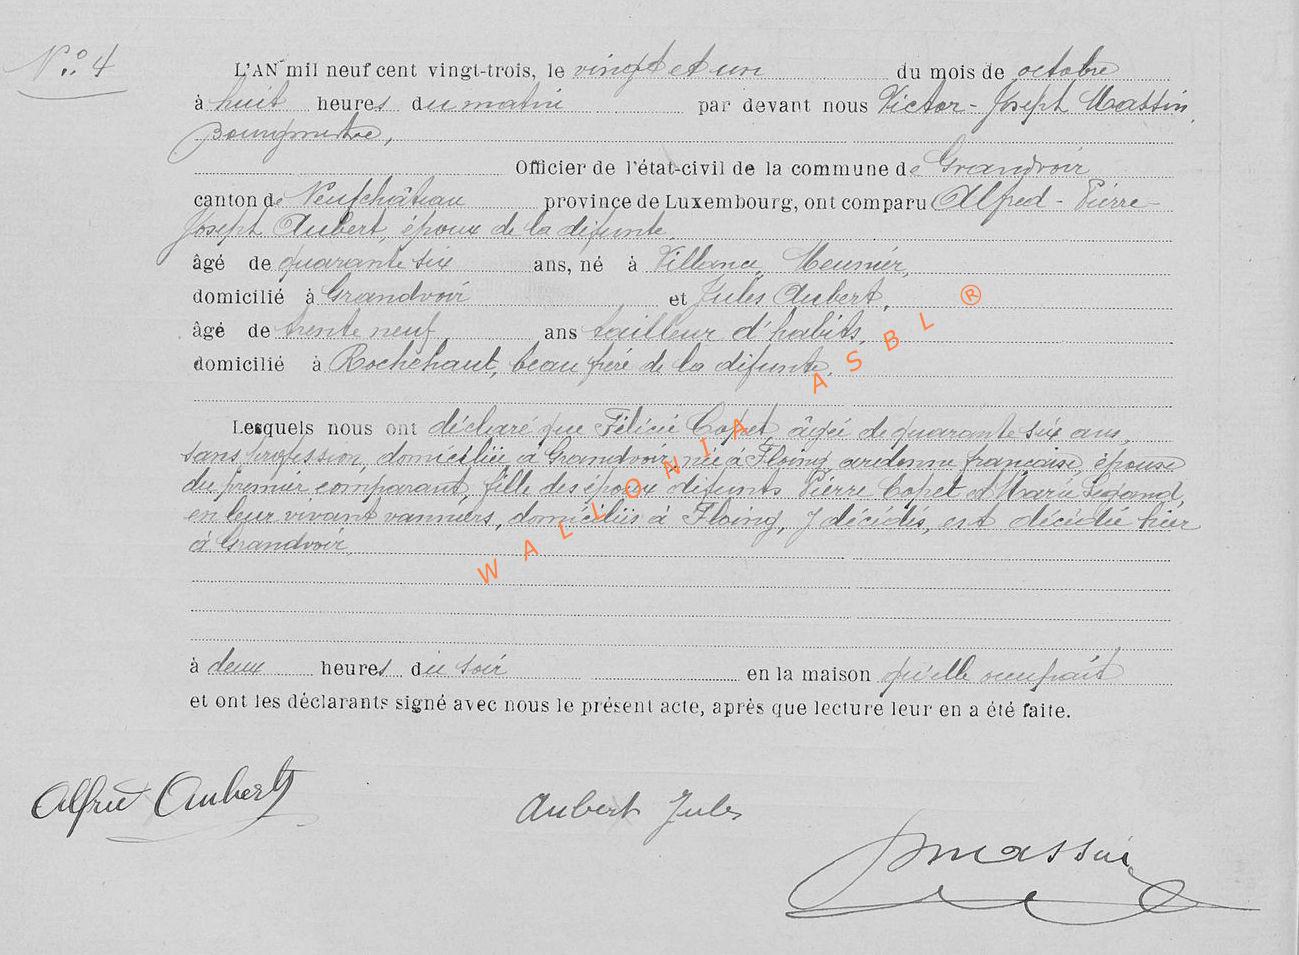 N° 4
L'AN mil neuf cent vingt-trois, le vingt et un du mois de octobre
à huit heures du matin par devant nous Victor-Joseph Massin,
Bourgmestre,
Officier de l'état-civil de la commune de Grandvoir
canton de Neufchâteau province de Luxembourg, ont comparu Alfred-Pierre-
Joseph Aubert, époux de la défunte
âgé de quarante six ans, né à Villance, Meunier,
domicilié à Grandvoir et Jules Aubert,
âgé de trente neuf ans tailleur d'habits,
domicilié à Rochehaut, beau frère de la défunte,
Lesquels nous ont déclaré que Félicie Copet, âgée de quarante six ans,
sans profession, domiciliée à Grandvoir, née à Floing, ardenne française, épouse
du premier comparant, fille des époux défunts Pierre Copet et Marie Legand,
en leur vivant vanniers, domiciliés à Floing, y décédés, est décédée hier
à Grandvoir
à deux heures du soir en la maison qu'elle occupait
et ont les déclarants signé avec nous le présent acte, après que lecture leur en a été faite.
Alfred Aubert
Aubert Jules
Massin
WALLONIA ASBL ®